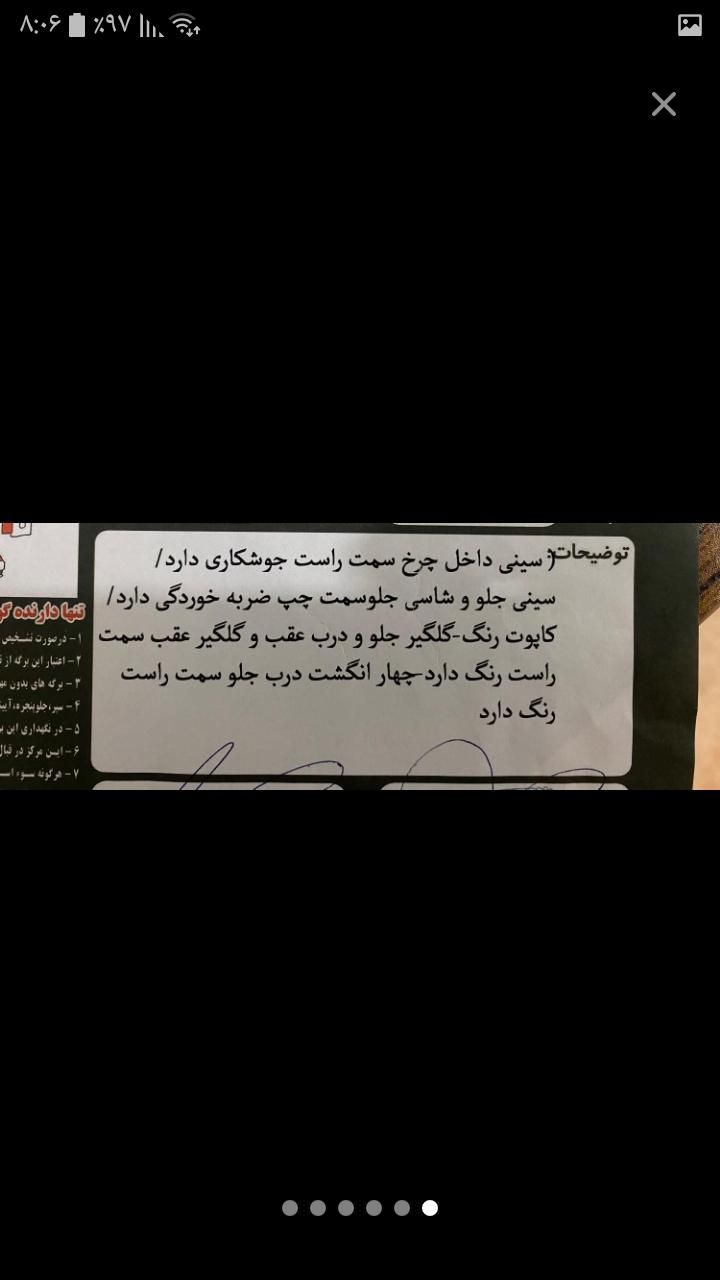 ۸:۰۶ ٪۹۷
توضیحات:
سینی داخل چرخ سمت راست جوشکاری دارد/
سینی جلو و شاسی جلوسمت چپ ضربه خوردگی دارد/
کاپوت رنگ-گلگیر جلو و درب عقب و گلگیر عقب سمت
راست رنگ دارد-چهار انگشت درب جلو سمت راست
رنگ دارد
تنها دارنده
۱- درصورت تشخیص
۲- اعتبار این برگه از
۳- برگه های بدون
۴- سپر،جلوپنجره،
۵- در نگهداری این
۶- این مرکز در قبال
۷- هرگونه سوء